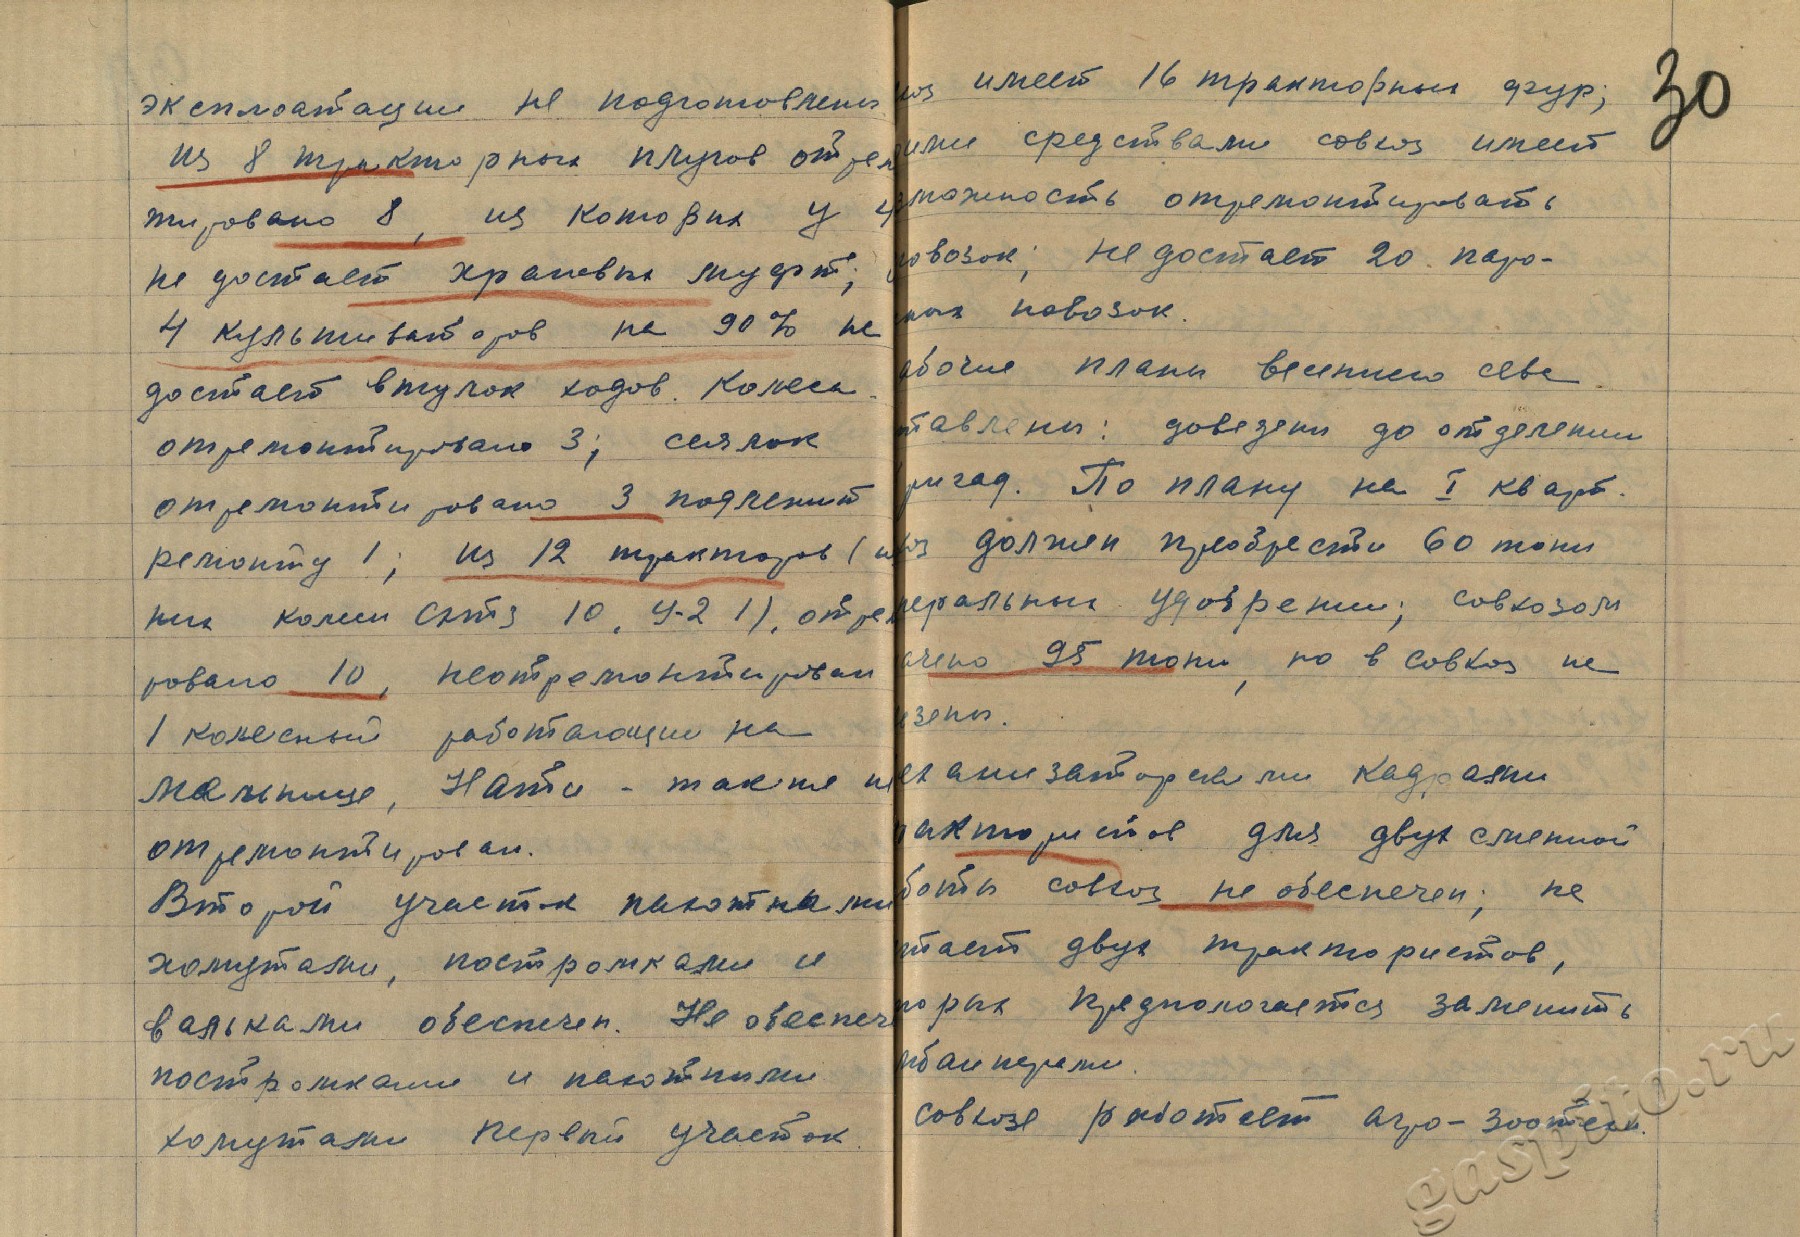 эксплоатации не подготовлены
из 8 тракторных плугов отрем
тировано 8, из которых у 4
не достает храповых муфт;
4 культиваторов на 90% не
достает втулок ходов. Колеса.
отремонтировано 3; сеялок
отремонтировано 3 подлежит
ремонту 1; из 12 тракторов (и
них колесн СХТЗ 10, У-2 1), отрем
ровано 10, неотремонтирован
1 колесный работающий на
мельнице, Нати - также не
отремонтирован.
Второй участок пахотными
хомутами, постромками и
вальками обеспечен. Не обеспече
постромками и пахотными
хомутами первый участок.
30
хоз имеет 16 тракторных фур;
ими средствами совхоз имеет
зможность отремонтировать
повозок; не достает 20 паро-
ных повозок.
абочие планы весеннего сева
тавлены: доведены до отделений
ригад. По плану на I кварт.
хоз должен приобрести 60 тонн
неральных удобрений; совхозом
ачено 95 тонн, но в совхоз не
езены.
еханизаторскими кадрами
рактористов для двух сменной
боты совхоз не обеспечен; не
тает двух трактористов,
торых предпологается заменить
мбайнерами.
совхозе работает агро-зоотехн.
gaspito.ru